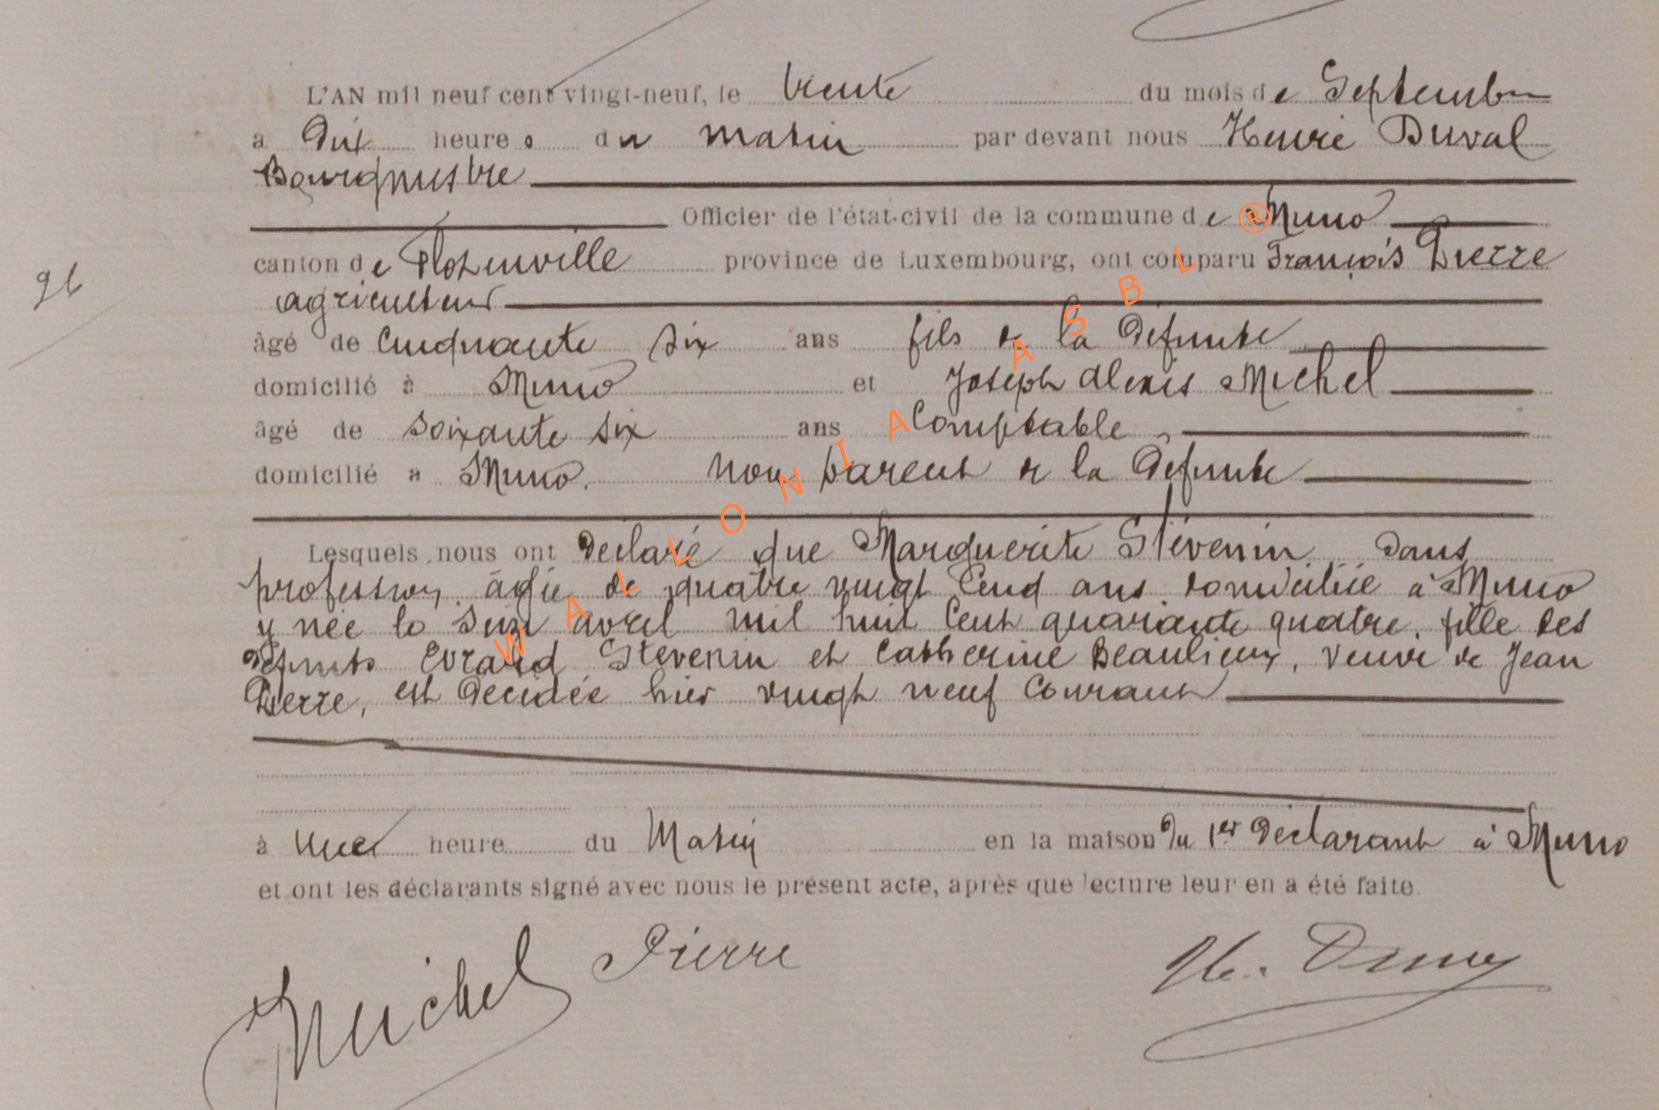 L'AN mil neuf cent vingt-neuf, le trente du mois de Septembre
à Dix heures du matin par devant nous Henri Duval
Bourgmestre
Officier de l'état-civil de la commune de Muno
canton de Florenville province de Luxembourg, ont comparu François Pierre
agriculteur
96
âgé de Cinquante six ans fils de la Défunte
domicilié à Muno et Joseph Alexis Michel
âgé de soixante six ans Comptable,
domicilié à Muno. non parent de la Défunte
Lesquels nous ont Déclaré que Marguerite Stévenin, sans
profession, âgée de quatre vingt Cinq ans domiciliée à Muno
y née le Seize avril mil huit Cent quarante quatre, fille des
défunts Evrard Stevenin et Catherine Beaulieux, Veuve de Jean
Pierre, est Décédée hier vingt neuf Courant
à une heure du Matin en la maison du 1er Déclarant à Muno
et ont les déclarants signé avec nous le présent acte, après que lecture leur en a été faite.
Michel Pierre H. Duval
WALLONIA ASBL ®